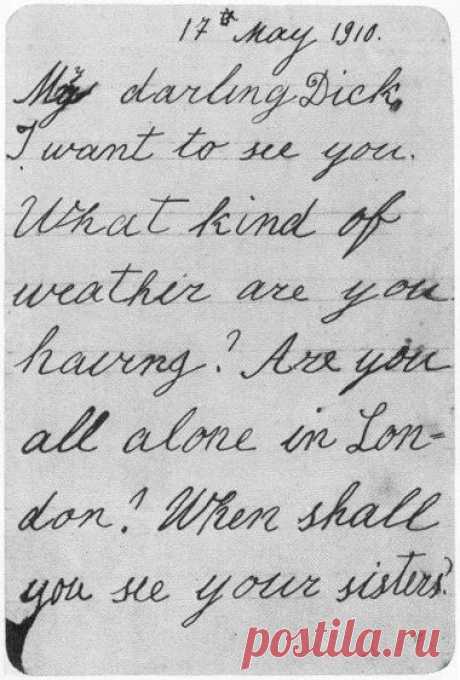 17th May 1910.
My darling Dick,
I want to see you.
What kind of
weather are you
having? Are you
all alone in Lon=
don? When shall
you see your sisters?
postila.ru